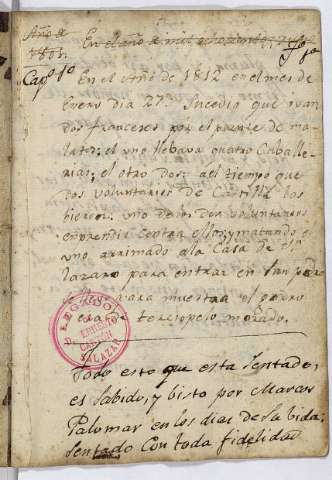 Año de
1801.
En el año de mil ochocientos
Capº 1º
En el Año de 1812 en el mes de
Enero dia 27. Sucedio que ivan
dos franceses por el puente de ma-
latos; el uno llebava quatro Caballe-
rias; el otro dos: al tiempo que
dos voluntarios de Castilla los
bieron; uno de los dos voluntarios
emprendio contra ellos, y matando el
uno arrimado a la Casa de Sn.
lazaro para entrar en San
para muestra el gorro
era de terciopelo morado.
LEGADO
D. ERNESTO
CAPÓN
SALAZAR
Todo esto que esta Sentado,
es Sabido, y bisto por Marcos
Palomar en los dias de Su bida;
Sentado Con toda fidelidad